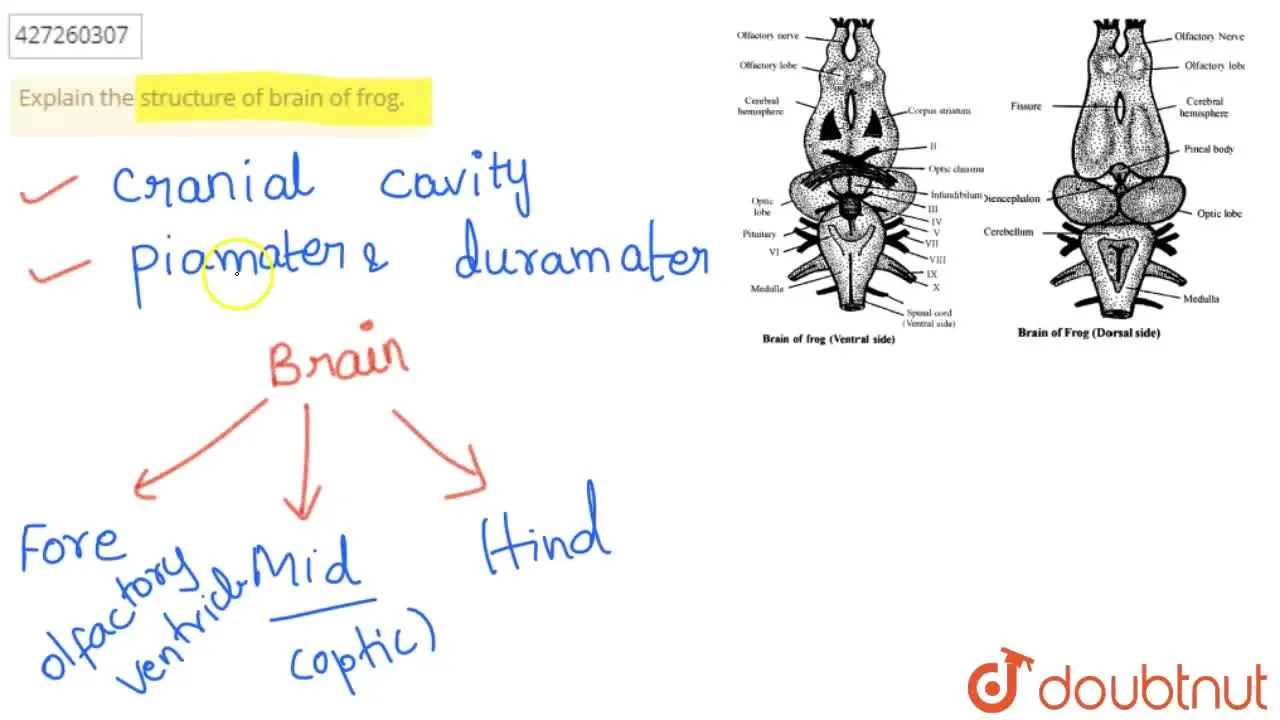 427260307
Explain the structure of brain of frog.
cranial cavity
piamater & duramater
Brain
Fore
Mid
Hind
olfactory
ventricle
(optic)
Olfactory nerve
Olfactory lobe
Cerebral
hemisphere
Corpus striatum
II
Optic chiasma
Infundibulum
III
Optic
lobe
IV
V
Pituitary
VII
VI
VIII
IX
Medulla
X
Spinal cord
(Ventral side)
Brain of frog (Ventral side)
Olfactory Nerve
Olfactory lobe
Fissure
Cerebral
hemisphere
Pineal body
Diencephalon
Optic lobe
Cerebellum
Medulla
Brain of Frog (Dorsal side)
doubtnut